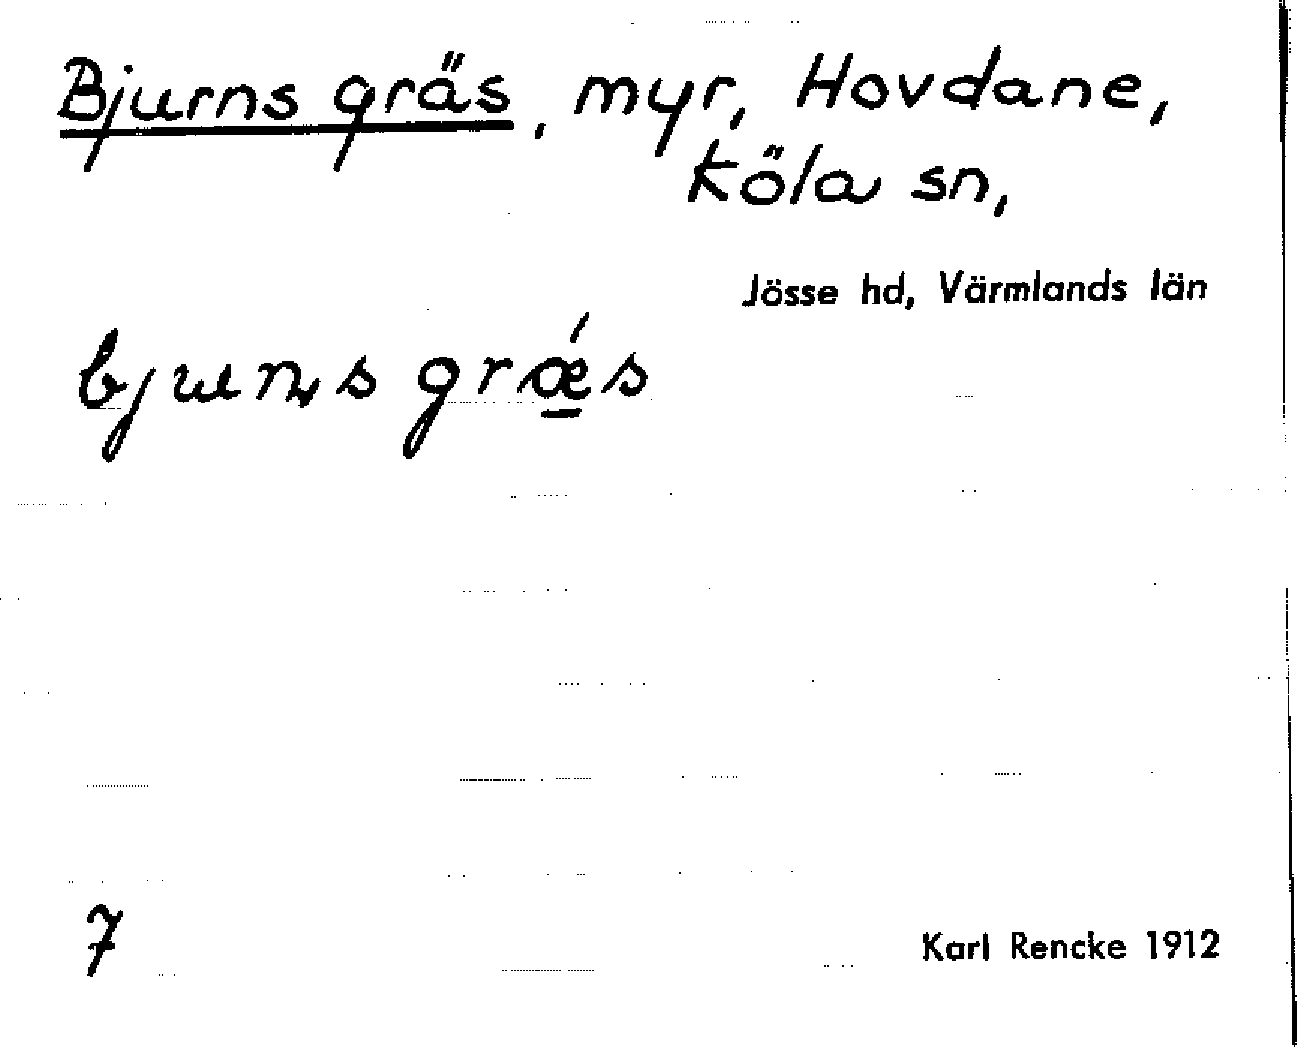 Bjurns gräs, myr, Hovdane,
Köla sn,
Jösse hd, Värmlands län
bjuɳs grǽ̱s
7
Karl Rencke 1912